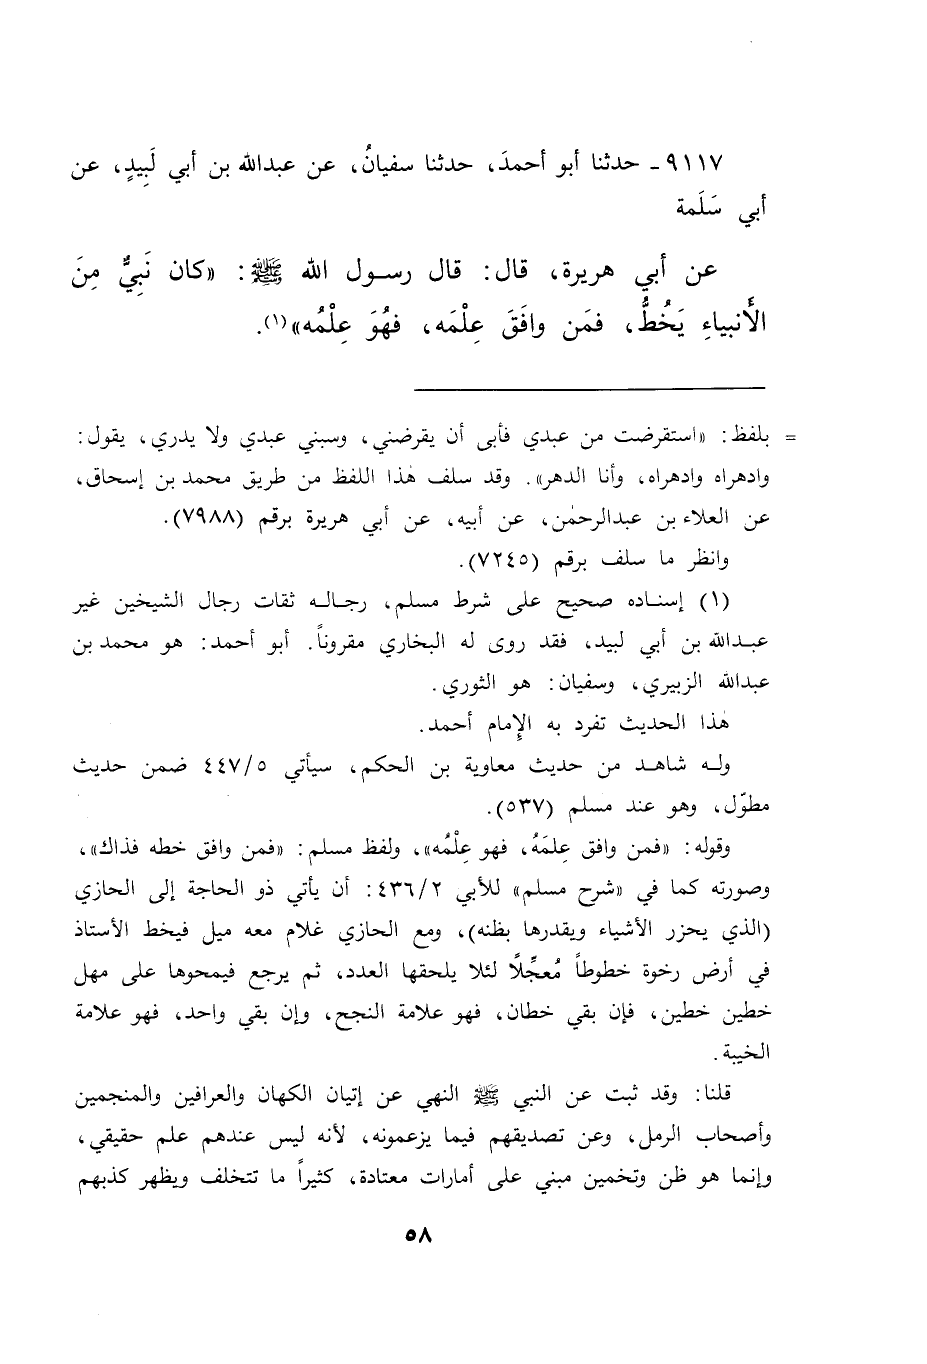 ٩١١٧ـ حدثنا أبو أحمدَ، حدثنا سفيانُ، عن عبدالله بن أبي لَبِيدٍ، عن
أبي سَلَمة
عن أبي هريرة، قال: قال رسول الله ﷺ: «كان نَبِيٌّ مِنَ
الأَنبياءِ يَخُطُّ، فمَن وافَقَ عِلْمَه، فهُوَ عِلْمُه»(١).
= بلفظ: «استقرضت من عبدي فأبى أن يقرضني، وسبني عبدي ولا يدري، يقول:
وادهراه وادهراه، وأنا الدهر». وقد سلف هٰذا اللفظ من طريق محمد بن إسحاق،
عن العلاء بن عبدالرحمٰن، عن أبيه، عن أبي هريرة برقم (٧٩٨٨).
وانظر ما سلف برقم (٧٢٤٥).
(١) إسناده صحيح على شرط مسلم، رجاله ثقات رجال الشيخين غير
عبدالله بن أبي لبيد، فقد روى له البخاري مقروناً. أبو أحمد: هو محمد بن
عبدالله الزبيري، وسفيان: هو الثوري.
هٰذا الحديث تفرد به الإمام أحمد.
وله شاهد من حديث معاوية بن الحكم، سيأتي ٤٤٧/٥ ضمن حديث
مطوّل، وهو عند مسلم (٥٣٧).
وقوله: «فمن وافق عِلمَهُ، فهو عِلْمُه»، ولفظ مسلم: «فمن وافق خطه فذاك»،
وصورته كما في «شرح مسلم» للأبي ٤٣٦/٢: أن يأتي ذو الحاجة إلى الحازي
(الذي يحزر الأشياء ويقدرها بظنه)، ومع الحازي غلام معه ميل فيخط الأستاذ
في أرض رخوة خطوطاً مُعجِّلًا لئلا يلحقها العدد، ثم يرجع فيمحوها على مهل
خطين خطين، فإن بقي خطان، فهو علامة النجح، وإن بقي واحد، فهو علامة
الخيبة.
قلنا: وقد ثبت عن النبي ﷺ النهي عن إتيان الكهان والعرافين والمنجمين
وأصحاب الرمل، وعن تصديقهم فيما يزعمونه، لأنه ليس عندهم علم حقيقي،
وإنما هو ظن وتخمين مبني على أمارات معتادة، كثيراً ما تتخلف ويظهر كذبهم
٥٨